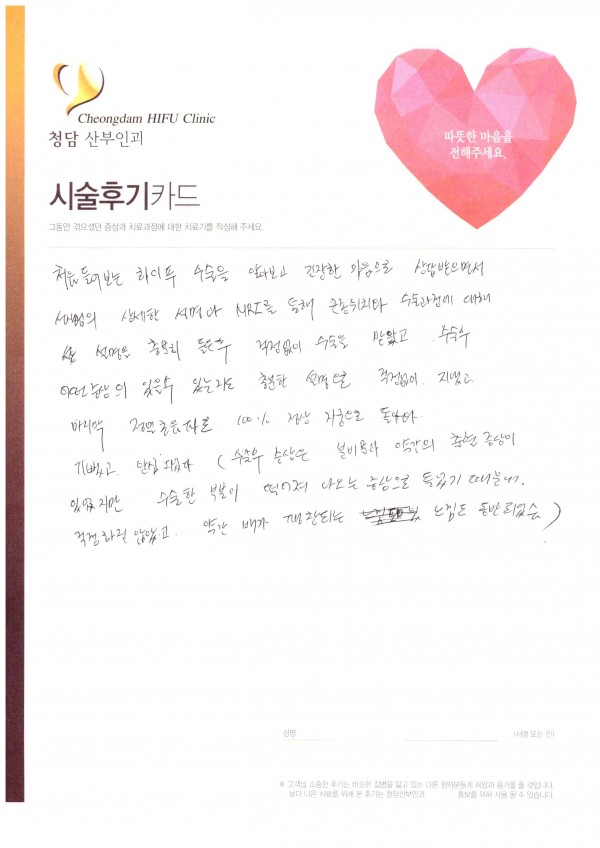 Cheongdam HIFU Clinic
청담 산부인과
따뜻한 마음을
전해주세요.
시술후기카드
그동안 겪으셨던 증상과 치료과정에 대한 치료기를 작성해 주세요.
처음 들어보는 하이푸 수술을 알아보고 긴장한 마음으로 상담받으면서
선생님의 상세한 설명과 MRI를 통해 근종위치와 수술과정에 대해
설명을 충분히 들은후 걱정없이 수술을 받았고. 수술후
어떤증상의 있을수 있는지도 충분한 설명으로 걱정없이 지냈고.
마지막 초음파로 100% 정상 자궁으로 돌아와
기뻤고. (수술후 증상은 분비물과 약간의 출혈증상이
있었지만 수술한 부분이 떨어져 나오는 증상으로 들었기 때문에.
걱정하진 않았고. 약간 배가 땡기는 느낌도 동반되었음)
성명
(서명 또는 인)
※ 고객님 소중한 후기는 비슷한 질병을 앓고 있는 다른 환자분들께 희망과 용기를 줄 것입니다.
보다 나은 치료를 위해 본 후기는 청담산부인과 홍보를 위해 사용 될 수 있습니다.